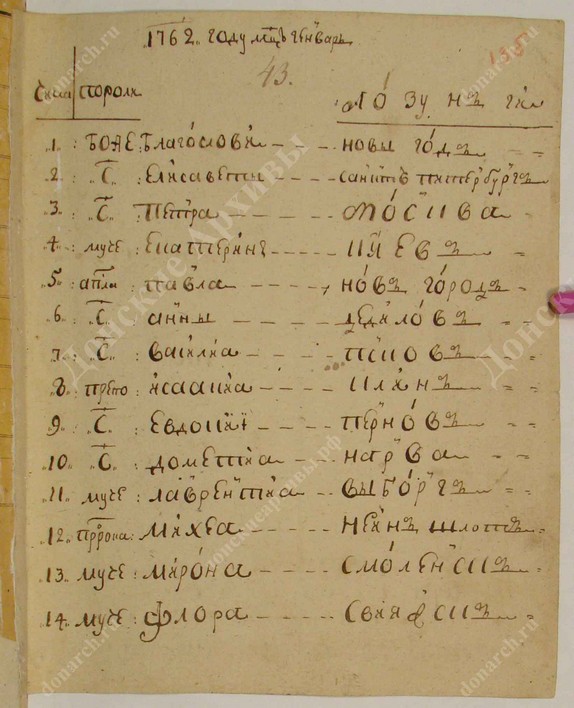 1762 году мцъ генварь
135
43.
числа пороли лозунги
1: боже: благослови новы годъ
2: С: елисаветы санктъ питербургъ
3: С: петра москва
4: муче: екатерины киевъ
5: апла: павла новъ городъ
6: С: анны
7: С: василиа псковъ
8: препо: исаакиа клинъ
9: С: евдокиі перновъ
10: С: дометиа нарва
11: муче: лаврентиа выборгъ
12: пррока: михеа неинъ шлотъ
13: муче: мирона смоленскъ
14: муче: флора свияскъ